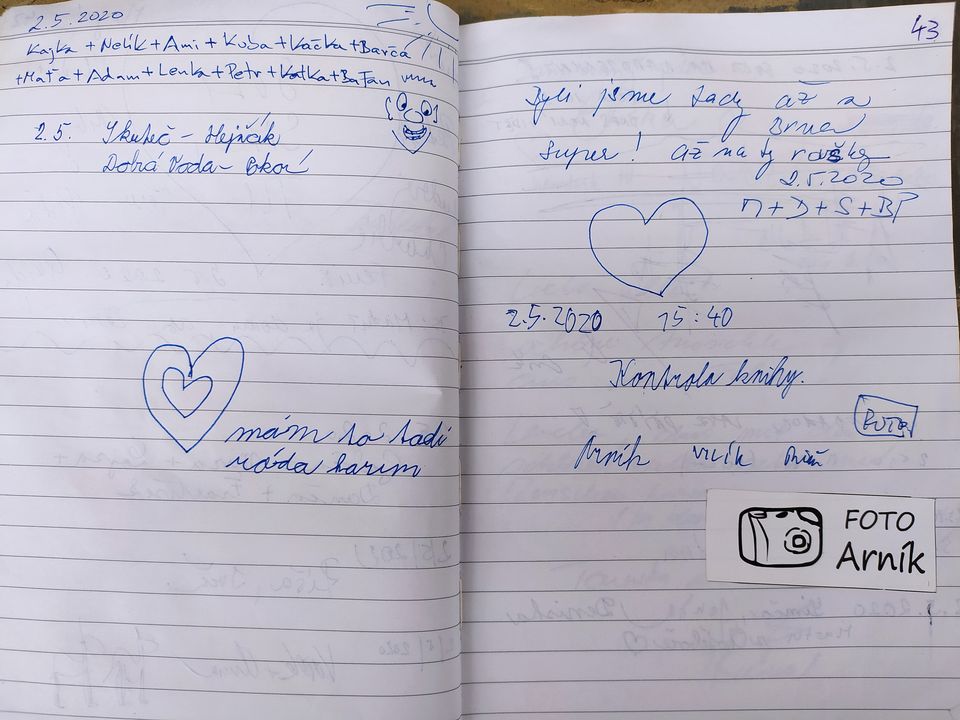 2.5.2020
Kajka + Nelík + Ami + Kuba + Kačka + Barča
+ Maťa + Adam + Lenka + Petr + Katka + Baťan
2.5. Skuteč - Hejčák
Dobrá Voda -
mám to tadi
ráda karim
43
Byli jsme tady až z
Brna
super! až na ty rousky
2.5.2020
M + D + S + BP
2.5.2020 15:40
Kontrola knihy.
Arník vlčík
FOTO
Arník